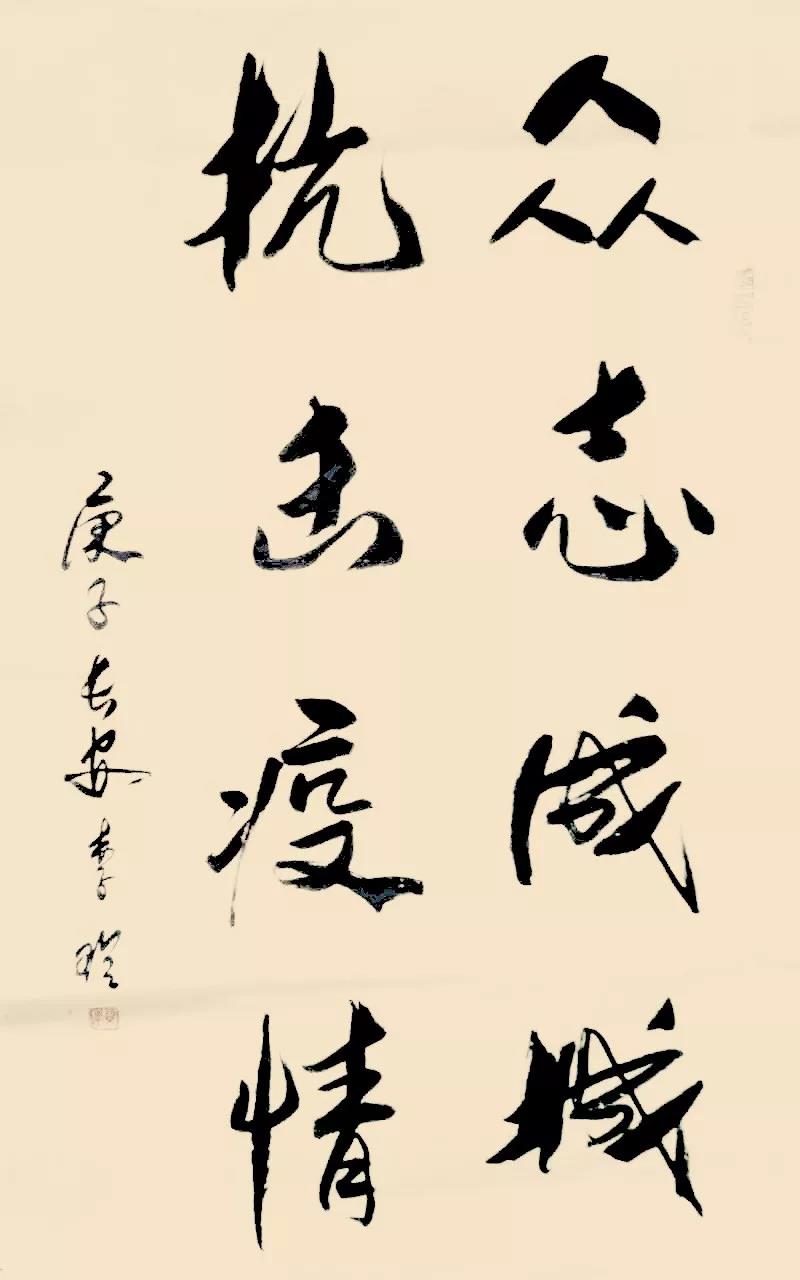 众志成城
抗击疫情
庚子长安李